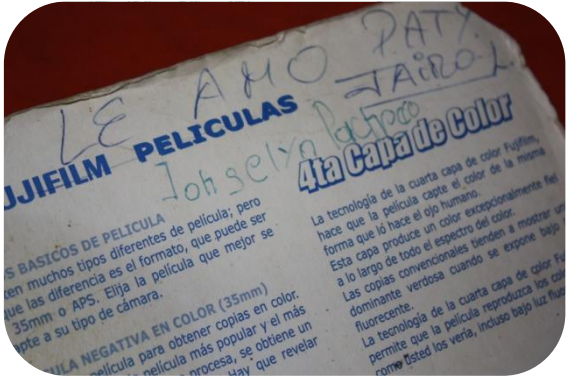 LE AMO PATY
JAIRO L.
Johselyn Pacheco
UJIFILM PELICULAS
S BASICOS DE PELICULA
ten muchos tipos diferentes de película; pero
que las diferencia es el formato, que puede ser
35mm o APS. Elija la película que mejor se
apte a su tipo de cámara.
ULA NEGATIVA EN COLOR (35mm)
película para obtener copias en color.
película más popular y el más
procesa, se obtiene un
Hay que revelar
4ta Capa de Color
La tecnología de la cuarta capa de color Fujifilm,
hace que la película capte el color de la misma
forma que ló hace el ojo humano.
Esta capa produce un color excepcionalmente fiel
a lo largo de todo el espectro del color.
Las copias convencionales tienden a mostrar un
dominante verdosa cuando se expone bajo
fluorecente.
La tecnología de la cuarta capa de color Fu
permite que la película reproduzca los colo
como usted los vería, incluso bajo luz fluo